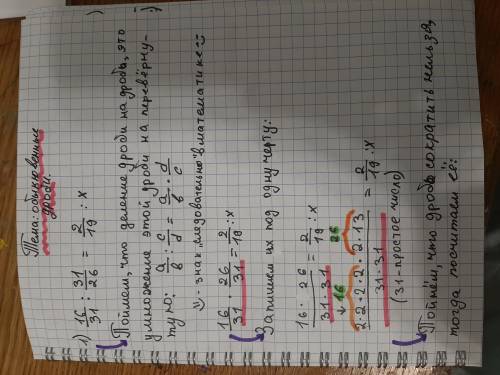 Тема: обыкновенные
дроби.
1) 16/31 : 31/26 = 2/19 : x
Поймем, что деление дроби на дробь, это
умножение этой дроби на перевёрну-
тую: a/b : c/d = a/b · d/c
⇓ - знак „следовательно" в математике
16/31 · 26/31 = 2/19 : x
Запишем их под одну черту:
16 · 26/31 · 31 = 2/19 : x
⇓ 16 26
2·2·2·2·2·13/31·31 = 2/19 : x
(31 - простое число)
Поймём, что дробь сократить нельзя,
тогда посчитаем её: